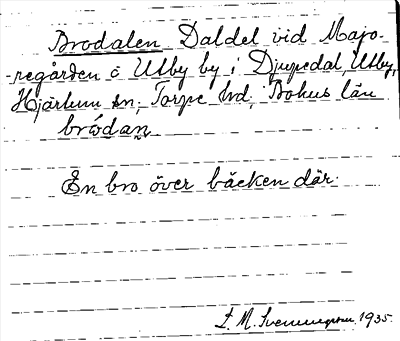 Brodalen Daldel vid Majo-
-regården å Utby by i Djupedal, Utby,
Hjärtum sn, Torpe hd, Bohus län
brǿdaņ
En bro över bäcken där.
L. M. Svenungsson, 1935.